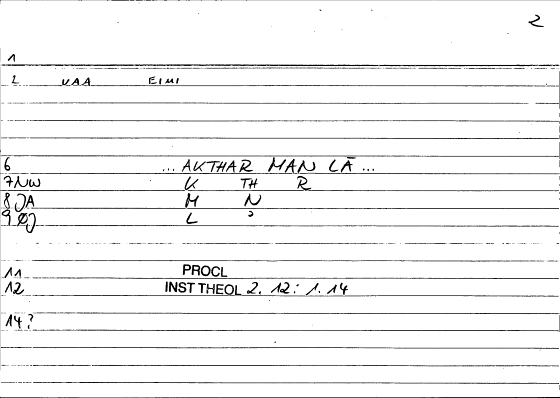 2
1
2 UAA EIMI
6 ... AKTHAR MAN LĀ ...
7 NW K TH R
8 JA M N
9 L ʾ
11 PROCL
12 INST THEOL 2. 12: 1. 14
14?